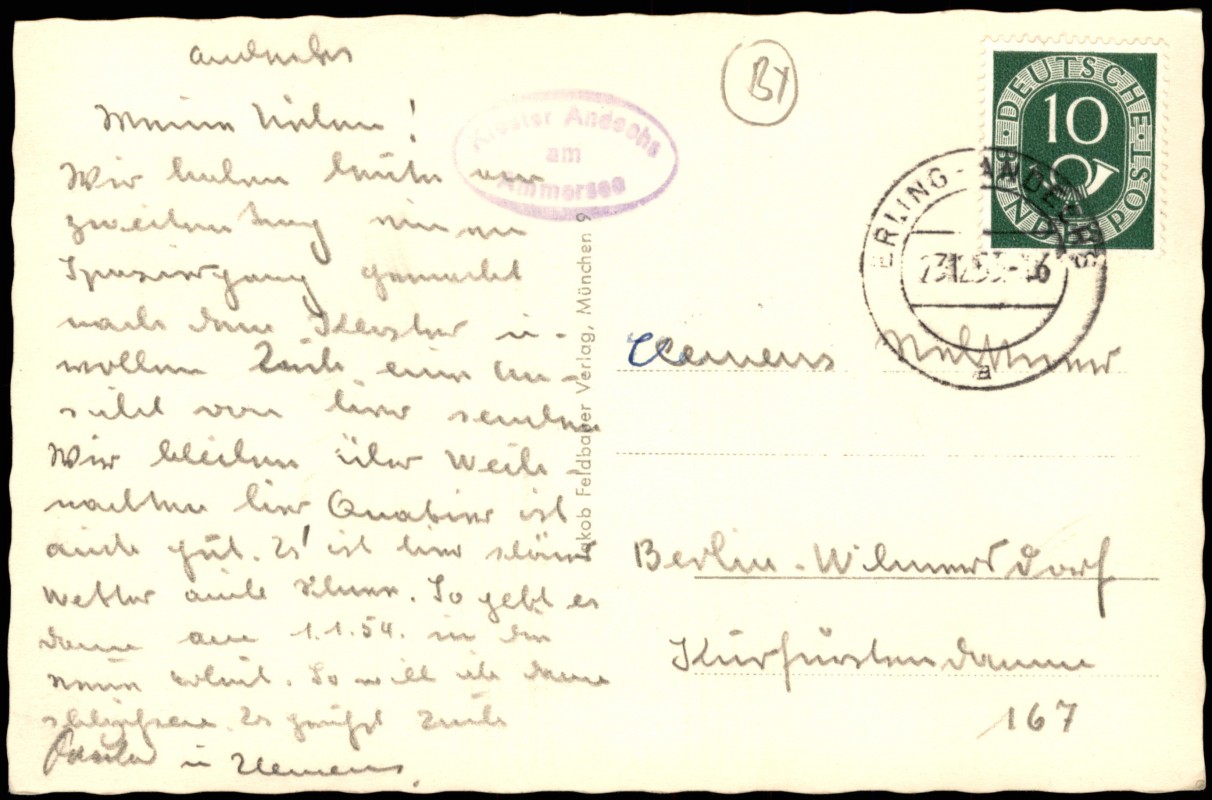 Andechs
Meine Lieben!
Wir haben heute am
zweiten Tag einen
Spaziergang gemacht
nach dem Kloster u.
wollen Euch eine An-
sicht von hier senden
Wir bleiben über Weih-
nachten hier Quatier ist
auch gut. Es ist hier schönes
Wetter auch Schnee. So geht es
dann am 1.1.54. in die
neue Arbeit. So will ich dann
schließen. Es grüßt Euch
u Klemens.
Kloster Andechs
am
Ammersee
Jakob Feldbauer Verlag, München 9
BY
DEUTSCHE BUNDESPOST
10
ERLING-ANDECHS
23.12.53.-16
a
Clemens
Berlin-Wilmersdorf
Kurfürstendamm
167